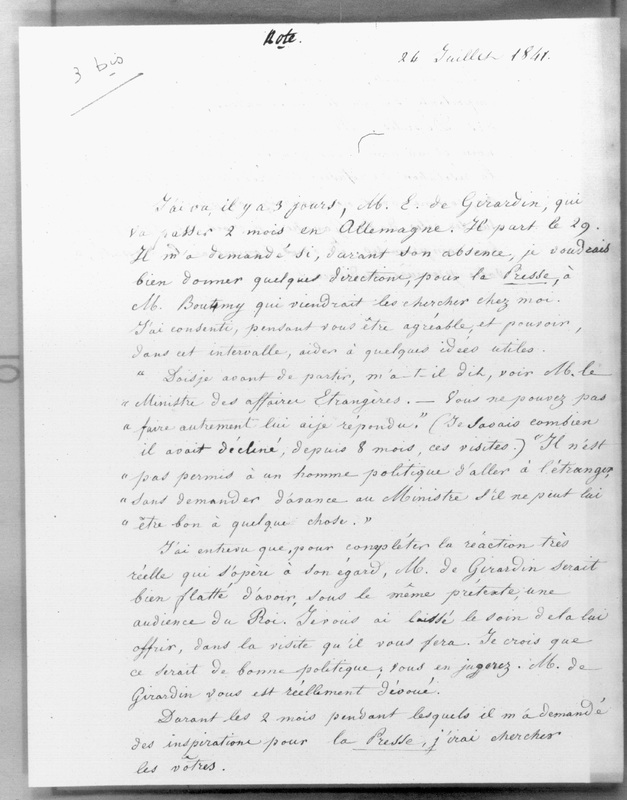 Note.
3 bis
26 Juillet 1841.
J'ai vu, il y a 3 jours, M. E. de Girardin, qui
va passer 2 mois en Allemagne. Il part le 29.
Il m'a demandé si, durant son absence, je voudrais
bien donner quelques directions, pour la Presse, à
M. Boutmy qui viendrait les chercher chez moi.
J'ai consenti, pensant vous être agréable, et pouvoir,
dans cet intervalle, aider à quelques idées utiles.
" Dois je avant de partir, m'a-t-il dit, voir M. le
" Ministre des affaires Etrangères. — Vous ne pouvez pas
" faire autrement lui ai je répondu." (Je savais combien
il avait décliné, depuis 8 mois, ces visites.) "Il n'est
" pas permis à un homme politique d'aller à l'étranger,
" sans demander d'avance au Ministre s'il ne peut lui
" être bon à quelque chose."
J'ai entrevu que, pour compléter la réaction très
réelle qui s'opère à son égard, M. de Girardin serait
bien flatté d'avoir, sous le même prétexte, une
audience du Roi. Je vous ai laissé le soin de la lui
offrir, dans la visite qu'il vous fera. Je crois que
ce serait de bonne politique; vous en jugerez. M. de
Girardin vous est réellement dévoué.
Durant les 2 mois pendant lesquels il m'a demandé
des inspirations pour la Presse, j'irai chercher
les vôtres.